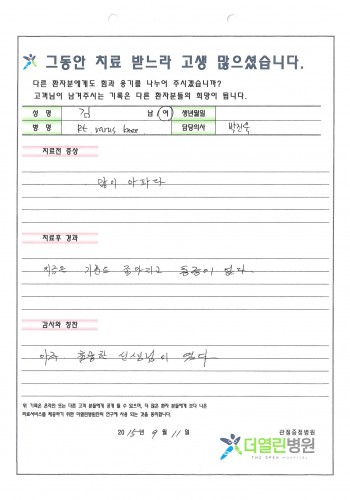 그동안 치료 받느라 고생 많으셨습니다.
다른 환자분에게도 힘과 용기를 나누어 주시겠습니까?
고객님이 남겨주시는 기록은 다른 환자분들의 희망이 됩니다.
성 명 김 남 여 생년월일
병 명 Rt. varus knee 담당의사 박진욱
치료전 증상
많이 아파다
치료후 경과
지금은 기분도 좋아지고 통증이 없다.
감사와 칭찬
아주 훌륭한 선생님이 였다
위 기록은 온라인 또는 다른 고객 분들에게 공개 될 수 있으며, 더 많은 환자 분들에게 보다 나은
의료서비스를 제공하기 위한 더열린병원만의 연구에 사용 되는 것을 동의합니다.
2015년 9월 11일
관절중점병원
더열린병원
THE OPEN HOSPITAL